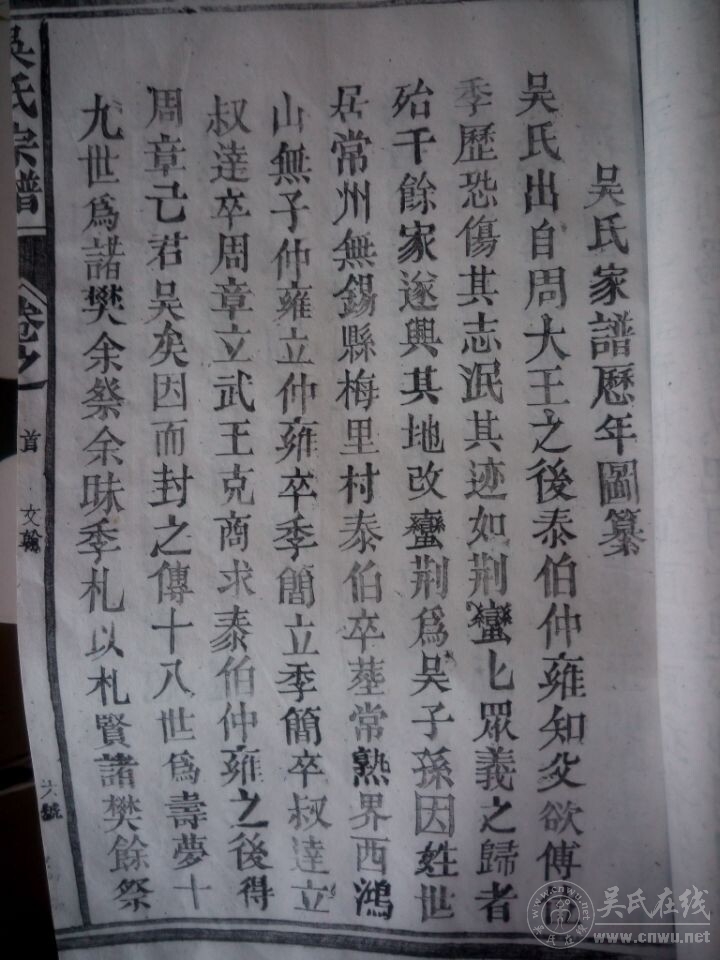 吳氏家譜歷年圖纂
吳氏出自周大王之後泰伯仲雍知父欲傳位
季歷恐傷其志泯其迹如荆蠻匕眾義之歸者
殆千餘家遂興其地改蠻荆爲吳子孫因姓世
居常州無錫縣梅里村泰伯卒塟常熟界西鴻
山無子仲雍立仲雍卒季簡立季簡卒叔達立
叔逹卒周章立武王克商求泰伯仲雍之後得
周章己君吳矣因而封之傳十八世爲壽夢十
九世爲諸樊余祭余昧季札以札賢諸樊餘祭
吳氏宗譜
卷之
首
文翰
吴氏在线
www.cnwu.net